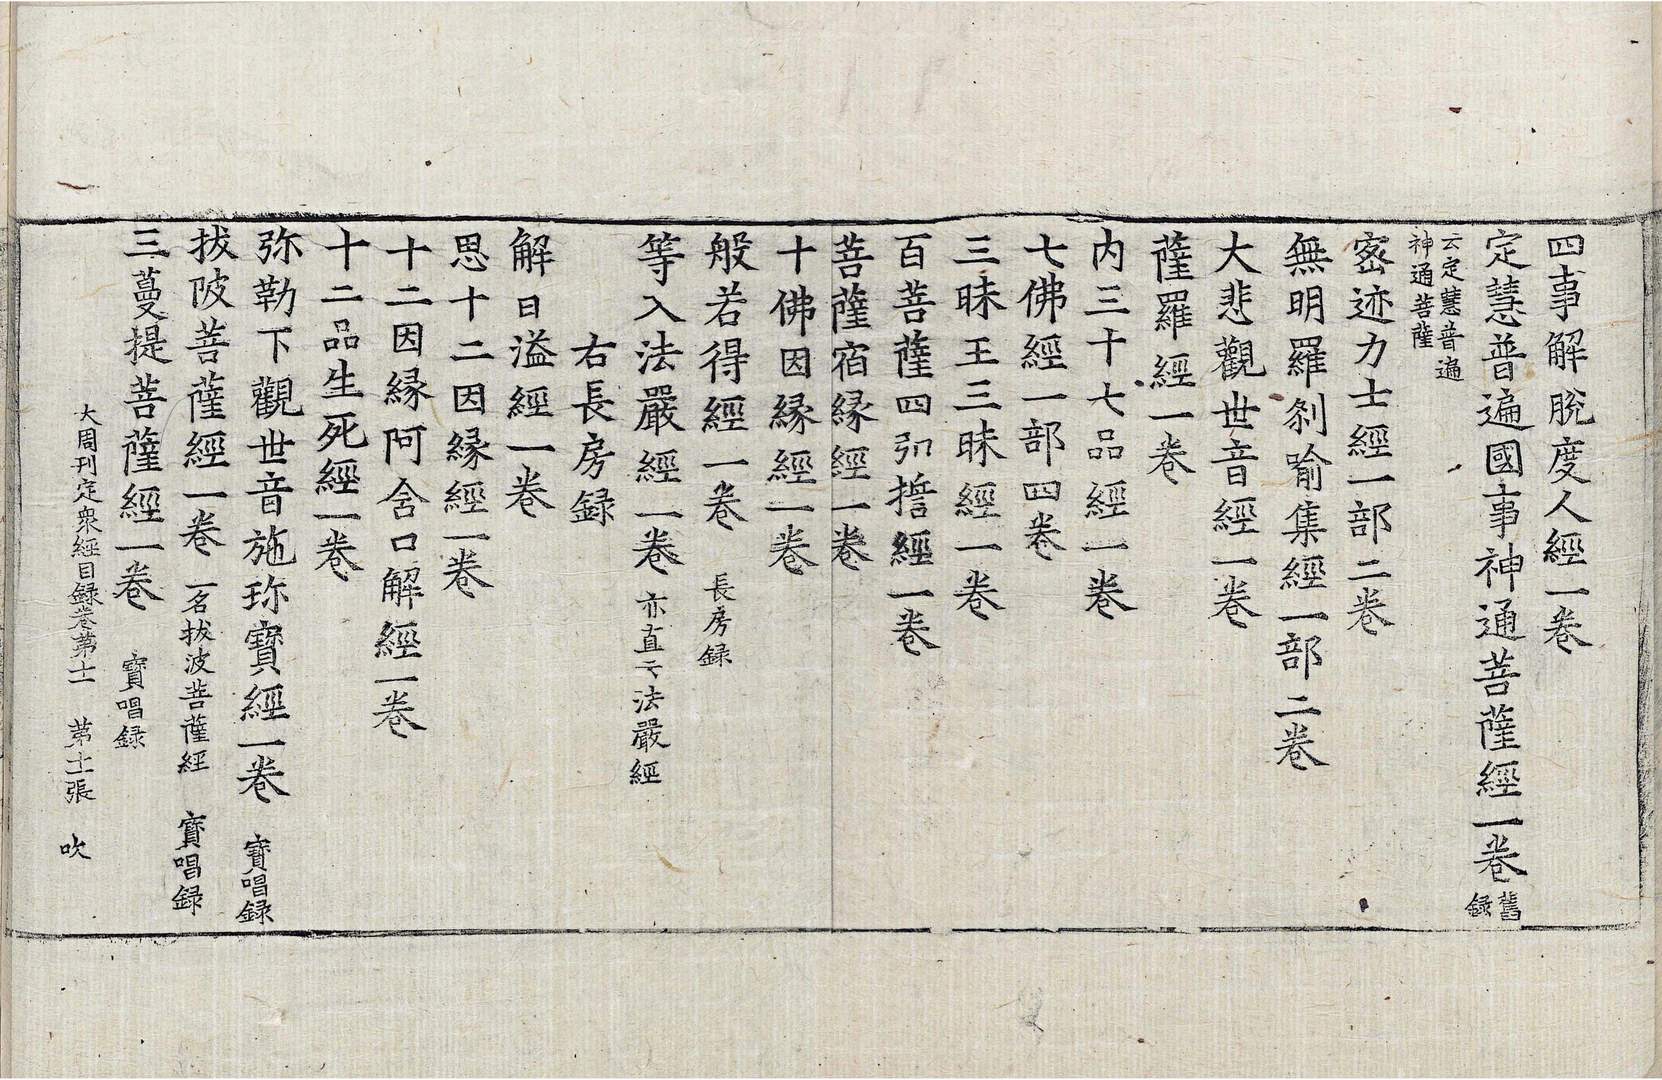 四事解脫度人經一卷
定慧普遍國事神通菩薩經一卷 舊錄
云定慧普遍神通菩薩
密迹力士經一部二卷
無明羅剎喻集經一部二卷
大悲觀世音經一卷
薩羅經一卷
内三十七品經一卷
七佛經一部四卷
三昧王三昧經一卷
百菩薩四弘誓經一卷
菩薩宿緣經一卷
十佛因緣經一卷
般若得經一卷 長房錄
等入法嚴經一卷 亦直云法嚴經
右長房錄
解日溢經一卷
思十二因緣經一卷
十二因緣阿含口解經一卷
十二品生死經一卷
弥勒下觀世音施珎寶經一卷 寶唱錄
拔陂菩薩經一卷 一名拔波菩薩經 寶唱錄
三蔓提菩薩經一卷 寶唱錄
大周刊定衆經目錄卷第十一 第十二張 吹